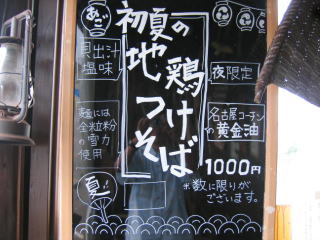 初夏の
地鶏
つけそば
あご
貝出汁
塩味
麺には
全粒粉
の雪力
使用
夏
夜限定
名古屋コーチン
の黄金油
1000円
※数に限りが
ございます。